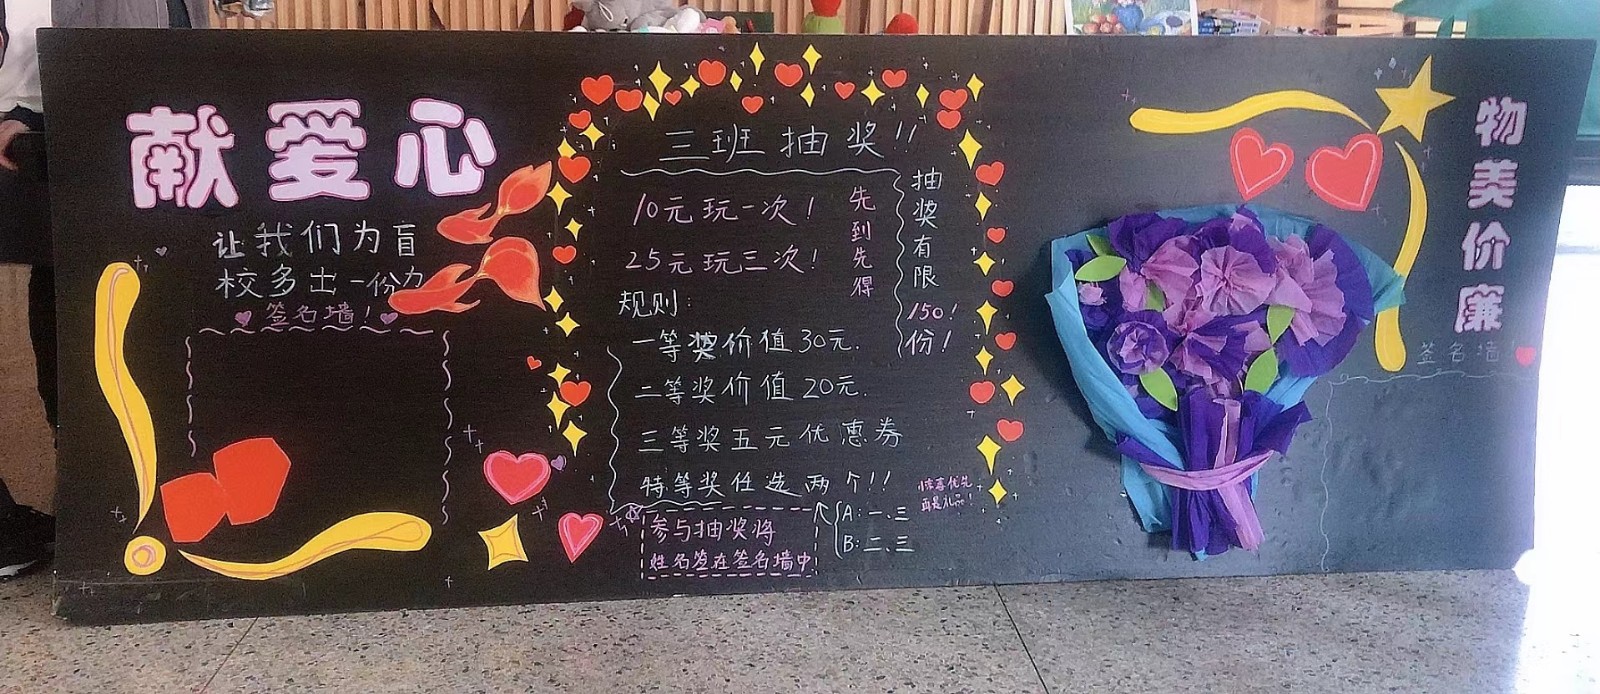 献爱心
让我们为盲
校多出一份力
签名墙!
三班抽奖!!
10元玩一次!
25元玩三次!
先到先得
抽奖有限150!份!
规则:
一等奖价值30元.
二等奖价值20元.
三等奖五元优惠券
特等奖任选两个!!
A:一、三
B:二、三
惊喜优先
再是礼品!
参与抽奖将
姓名签在签名墙中
物美价廉
签名墙!